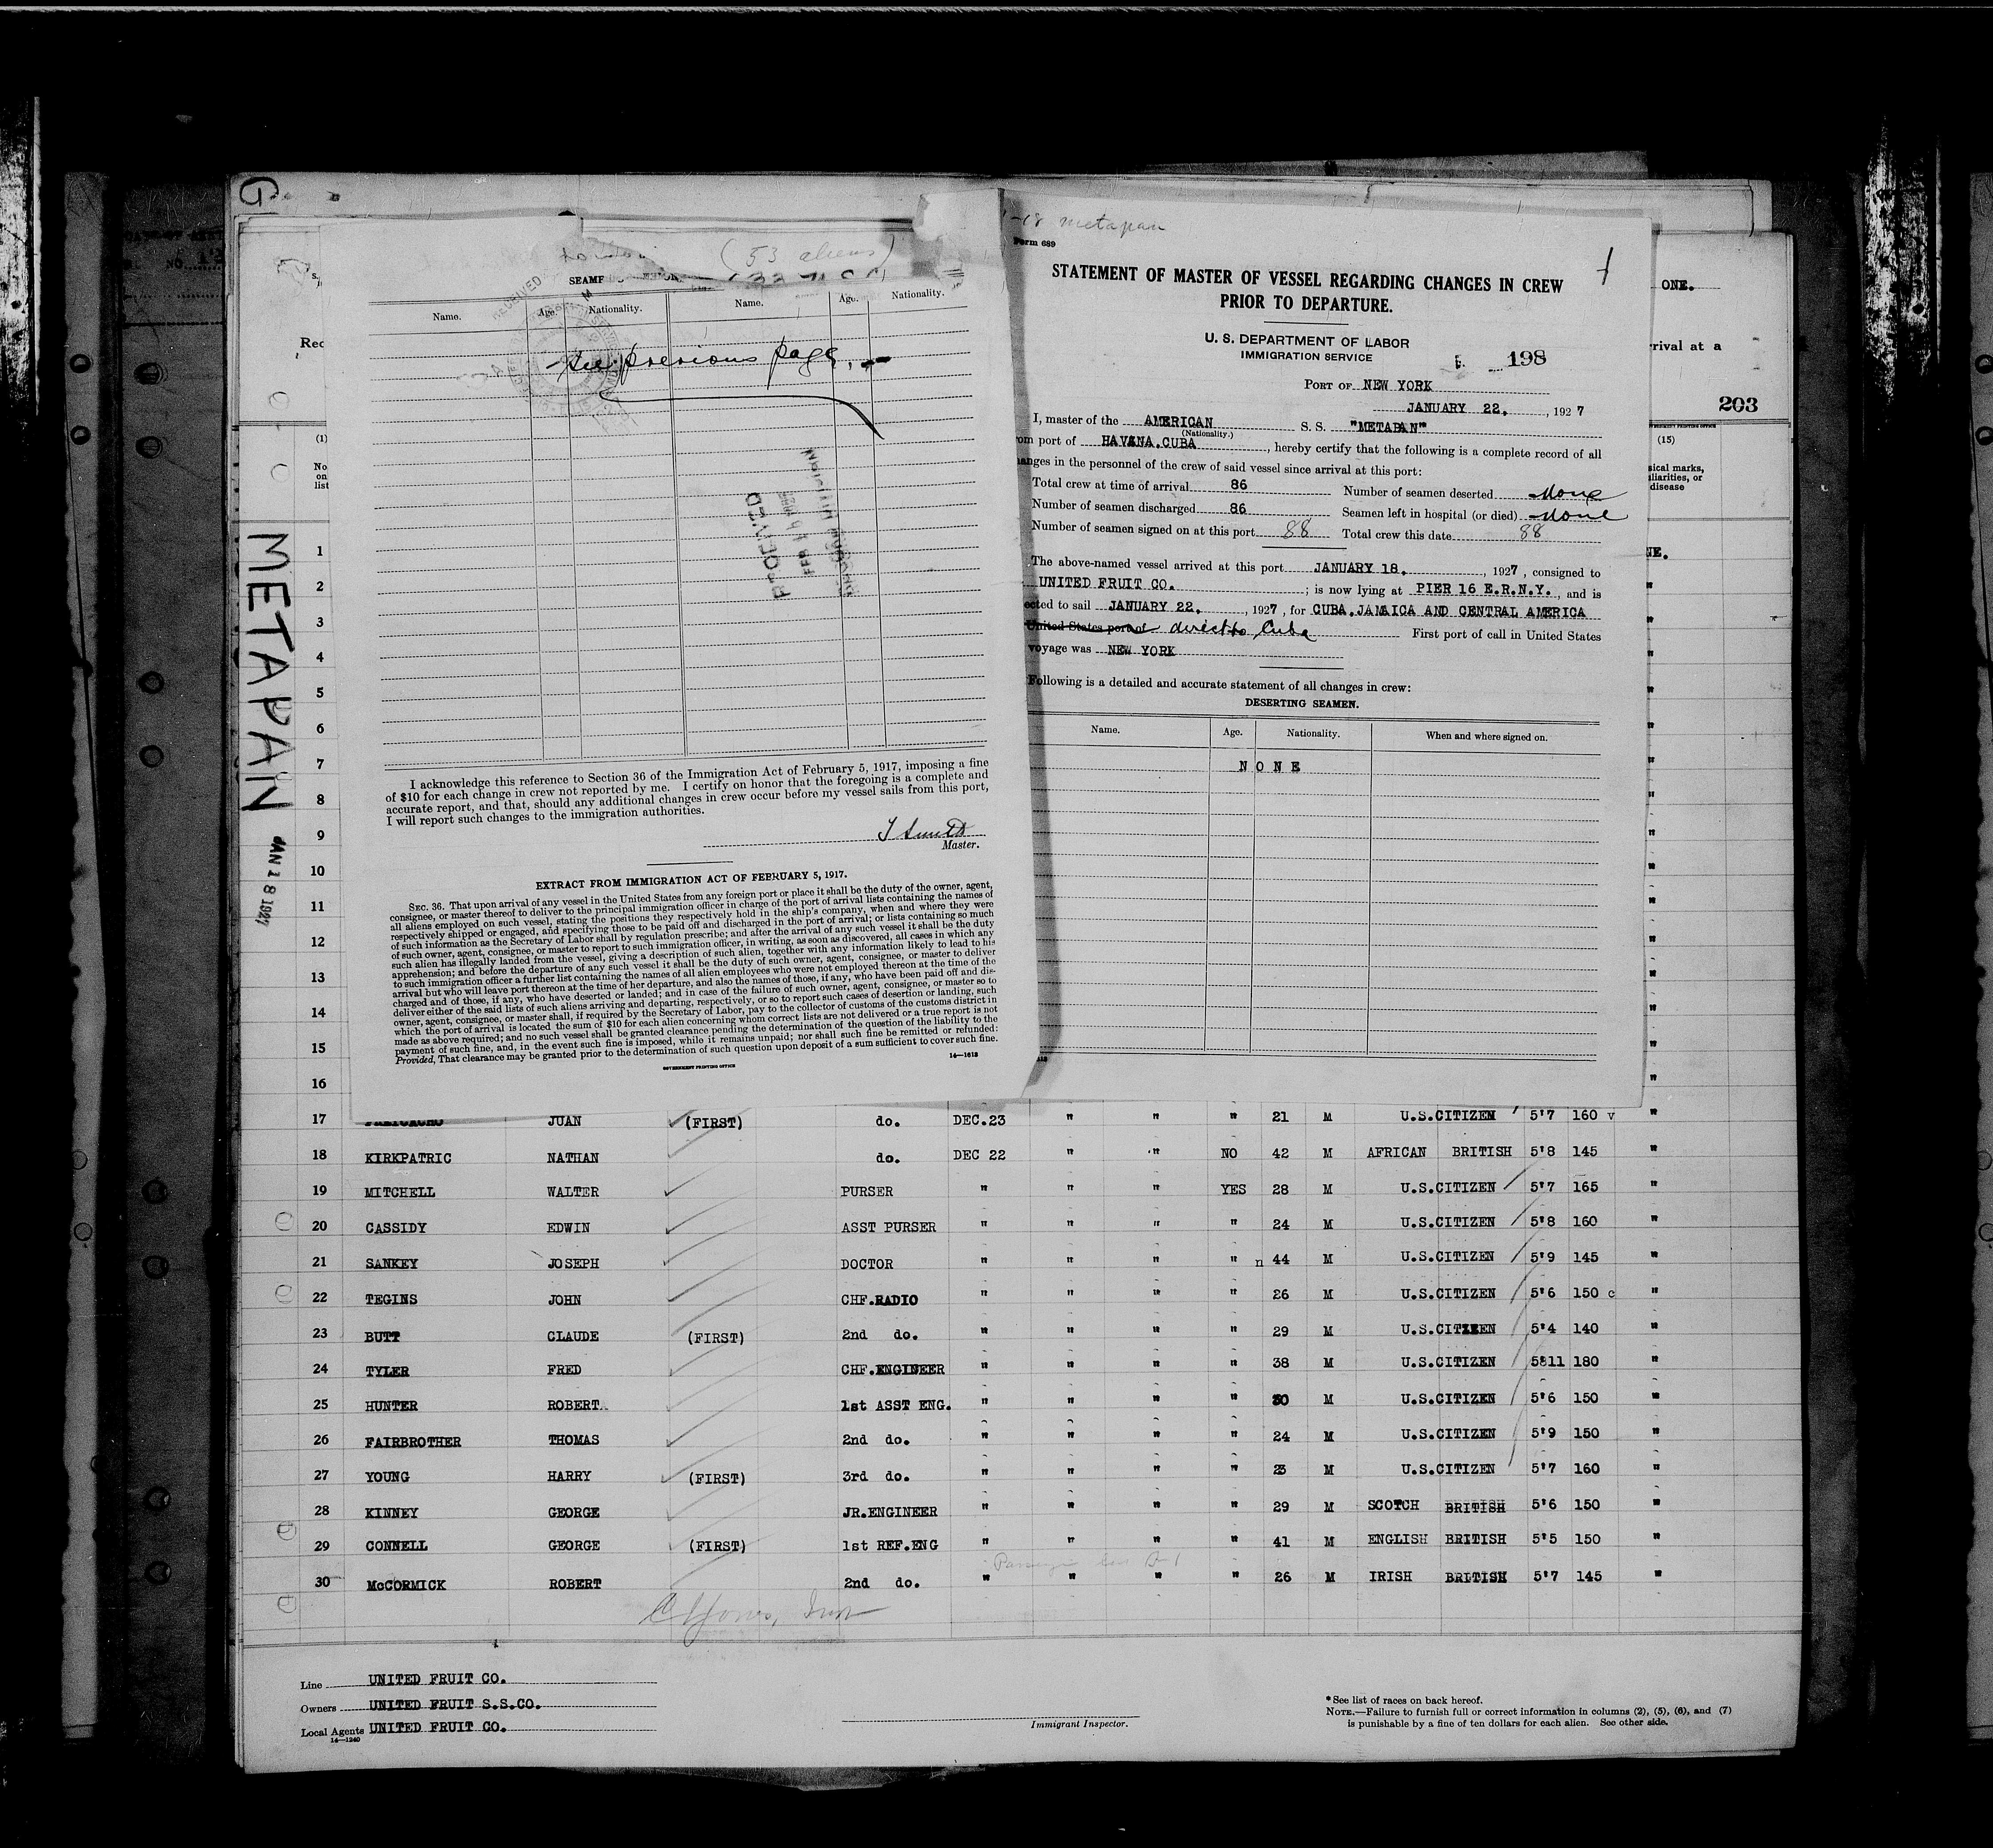 G
METAPAN
JAN 18 1927
(53 aliens)
Name.
Age.
Nationality.
Name.
Age.
Nationality.
see previous page.
I acknowledge this reference to Section 36 of the Immigration Act of February 5, 1917, imposing a fine
of $10 for each change in crew not reported by me. I certify on honor that the foregoing is a complete and
accurate report, and that, should any additional changes in crew occur before my vessel sails from this port,
I will report such changes to the immigration authorities.
Master.
EXTRACT FROM IMMIGRATION ACT OF FEBRUARY 5, 1917.
SEC. 36. That upon arrival of any vessel in the United States from any foreign port or place it shall be the duty of the owner, agent,
consignee, or master thereof to deliver to the principal immigration officer in charge of the port of arrival lists containing the names of
all aliens employed on such vessel, stating the positions they respectively hold in the ship's company, when and where they were
respectively shipped or engaged, and specifying those to be paid off and discharged in the port of arrival; or lists containing so much
of such information as the Secretary of Labor shall by regulation prescribe; and after the arrival of any such vessel it shall be the duty
of such owner, agent, consignee, or master to report to such immigration officer, in writing, as soon as discovered, all cases in which any
such alien has illegally landed from the vessel, giving a description of such alien, together with any information likely to lead to his
apprehension; and before the departure of any such vessel it shall be the duty of such owner, agent, consignee, or master to deliver
to such immigration officer a further list containing the names of all alien employees who were not employed thereon at the time of the
arrival but who will leave port thereon at the time of her departure, and also the names of those, if any, who have been paid off and dis-
charged and of those, if any, who have deserted or landed; and in case of the failure of such owner, agent, consignee, or master so to
deliver either of the said lists of such aliens arriving and departing, respectively, or so to report such cases of desertion or landing, such
owner, agent, consignee, or master shall, if required by the Secretary of Labor, pay to the collector of customs of the customs district in
which the port of arrival is located the sum of $10 for each alien concerning whom correct lists are not delivered or a true report is not
made as above required; and no such vessel shall be granted clearance pending the determination of the question of the liability to the
payment of such fine, and, in the event such fine is imposed, while it remains unpaid; nor shall such fine be remitted or refunded:
Provided, That clearance may be granted prior to the determination of such question upon deposit of a sum sufficient to cover such fine.
GOVERNMENT PRINTING OFFICE
14—1613
metapan
Form 689
STATEMENT OF MASTER OF VESSEL REGARDING CHANGES IN CREW
PRIOR TO DEPARTURE.
U. S. DEPARTMENT OF LABOR
IMMIGRATION SERVICE
198
PORT OF NEW YORK
JANUARY 22, 1927
I, master of the AMERICAN S. S. "METAPAN"
(Nationality.)
om port of HAVANA.CUBA, hereby certify that the following is a complete record of all
anges in the personnel of the crew of said vessel since arrival at this port:
Total crew at time of arrival 86 Number of seamen deserted None
Number of seamen discharged 86 Seamen left in hospital (or died) None
Number of seamen signed on at this port 88 Total crew this date 88
The above-named vessel arrived at this port JANUARY 18, 1927, consigned to
UNITED FRUIT CO. ; is now lying at PIER 16 E.R.N.Y., and is
ected to sail JANUARY 22, 1927, for CUBA.JAMAICA AND CENTRAL AMERICA
United States port of direct to Cuba First port of call in United States
voyage was NEW YORK
Following is a detailed and accurate statement of all changes in crew:
DESERTING SEAMEN.
Name. Age. Nationality. When and where signed on.
NONE
ONE.
rrival at a
203
(15)
sical marks,
uliarities, or
disease
NE.
Rec
(1)
No
on
list
1
2
3
4
5
6
7
8
9
10
11
12
13
14
15
16
17 JUAN (FIRST) do. DEC.23 " " " 21 M U.S.CITIZEN 5'7 160 v "
18 KIRKPATRIC NATHAN do. DEC 22 " " NO 42 M AFRICAN BRITISH 5'8 145 "
19 MITCHELL WALTER PURSER " " " YES 28 M U.S.CITIZEN 5'7 165 "
20 CASSIDY EDWIN ASST PURSER " " " " 24 M U.S.CITIZEN 5'8 160 "
21 SANKEY JOSEPH DOCTOR " " " " n 44 M U.S.CITIZEN 5'9 145 "
22 TEGINS JOHN CHF.RADIO " " " " 26 M U.S.CITIZEN 5'6 150 c "
23 BUTT CLAUDE (FIRST) 2nd do. " " " " 29 M U.S.CITIZEN 5'4 140 "
24 TYLER FRED CHF.ENGINEER " " " " 38 M U.S.CITIZEN 5'11 180 "
25 HUNTER ROBERT. 1st ASST ENG. " " " " 30 M U.S.CITIZEN 5'6 150 "
26 FAIRBROTHER THOMAS 2nd do. " " " " 24 M U.S.CITIZEN 5'9 150 "
27 YOUNG HARRY (FIRST) 3rd do. " " " " 23 M U.S.CITIZEN 5'7 160 "
28 KINNEY GEORGE JR.ENGINEER " " " " 29 M SCOTCH BRITISH 5'6 150 "
29 CONNELL GEORGE (FIRST) 1st REF.ENG " " " " 41 M ENGLISH BRITISH 5'5 150 "
30 McCORMICK ROBERT 2nd do. " " " " 26 M IRISH BRITISH 5'7 145 "
Line UNITED FRUIT CO.
Owners UNITED FRUIT S.S.CO.
Local Agents UNITED FRUIT CO.
14—1240
Immigrant Inspector.
*See list of races on back hereof.
NOTE.—Failure to furnish full or correct information in columns (2), (5), (6), and (7)
is punishable by a fine of ten dollars for each alien. See other side.